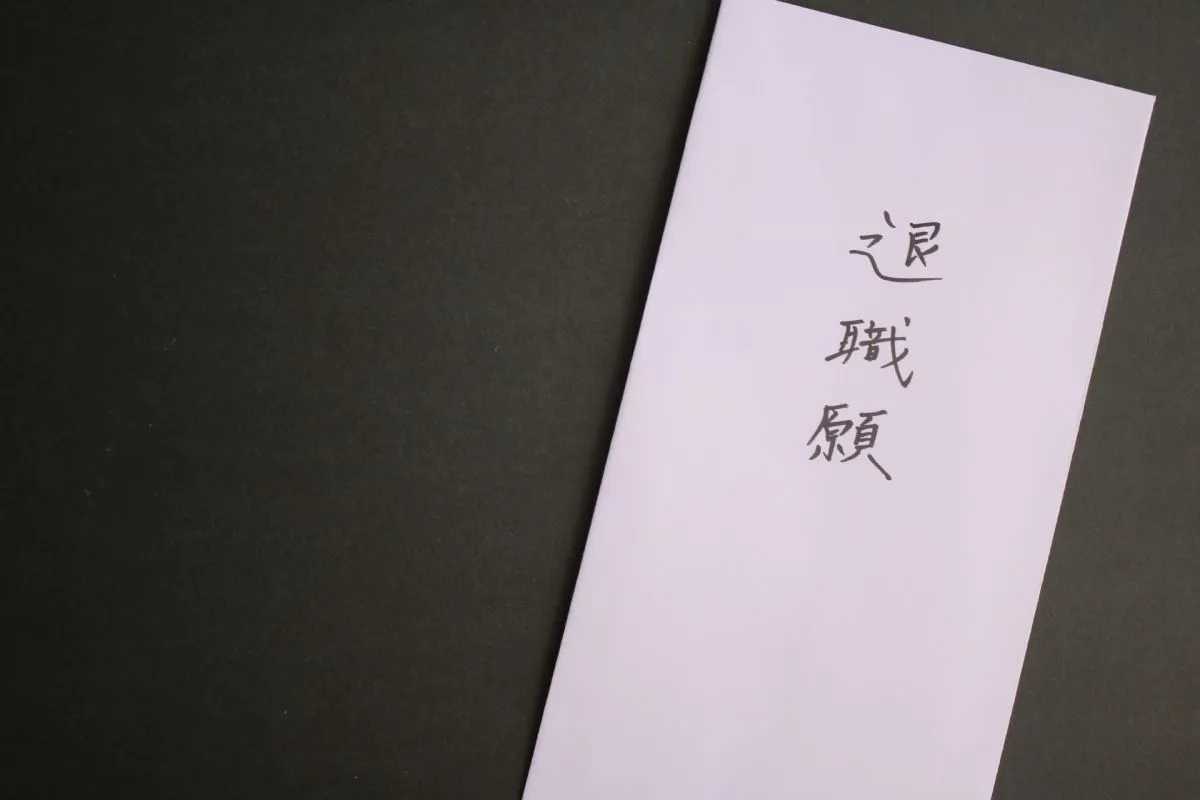 退職願